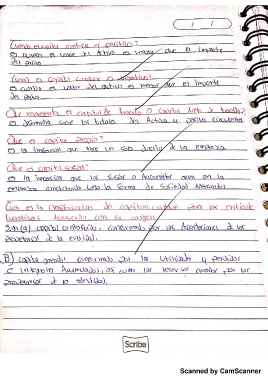 ¿Cuando el capital contable es positivo?
es cuando el valor del Activo es mayor que el importe
del pasivo
¿Cuando el capital contable es negativo?
es cuando el valor del activo es menor que el importe
del pasivo
¿Que representa el capital de trabajo o capital neto de trabajo?
es diferencia entre los totales del Activo y pasivo circulante
¿Que es capital propio?
es la inversion que hace un solo dueño de la empresa
¿Que es capital social?
es la inversion que los socios o Accionistas en la
empresa constituida bajo la forma de Sociedad Mercantil
¿Cual es la clasificacion de capital contable las entidades
lucrativas de acuerdo con su origen
capital contribuido conformado por las Aportaciones de los
propietarios de la entidad.
B) capital ganado conformado por las Utilidades y perdidas
Acumuladas, asi como las reservas creadas por los
propietarios de la entidad.
Scribe
Scanned by CamScanner